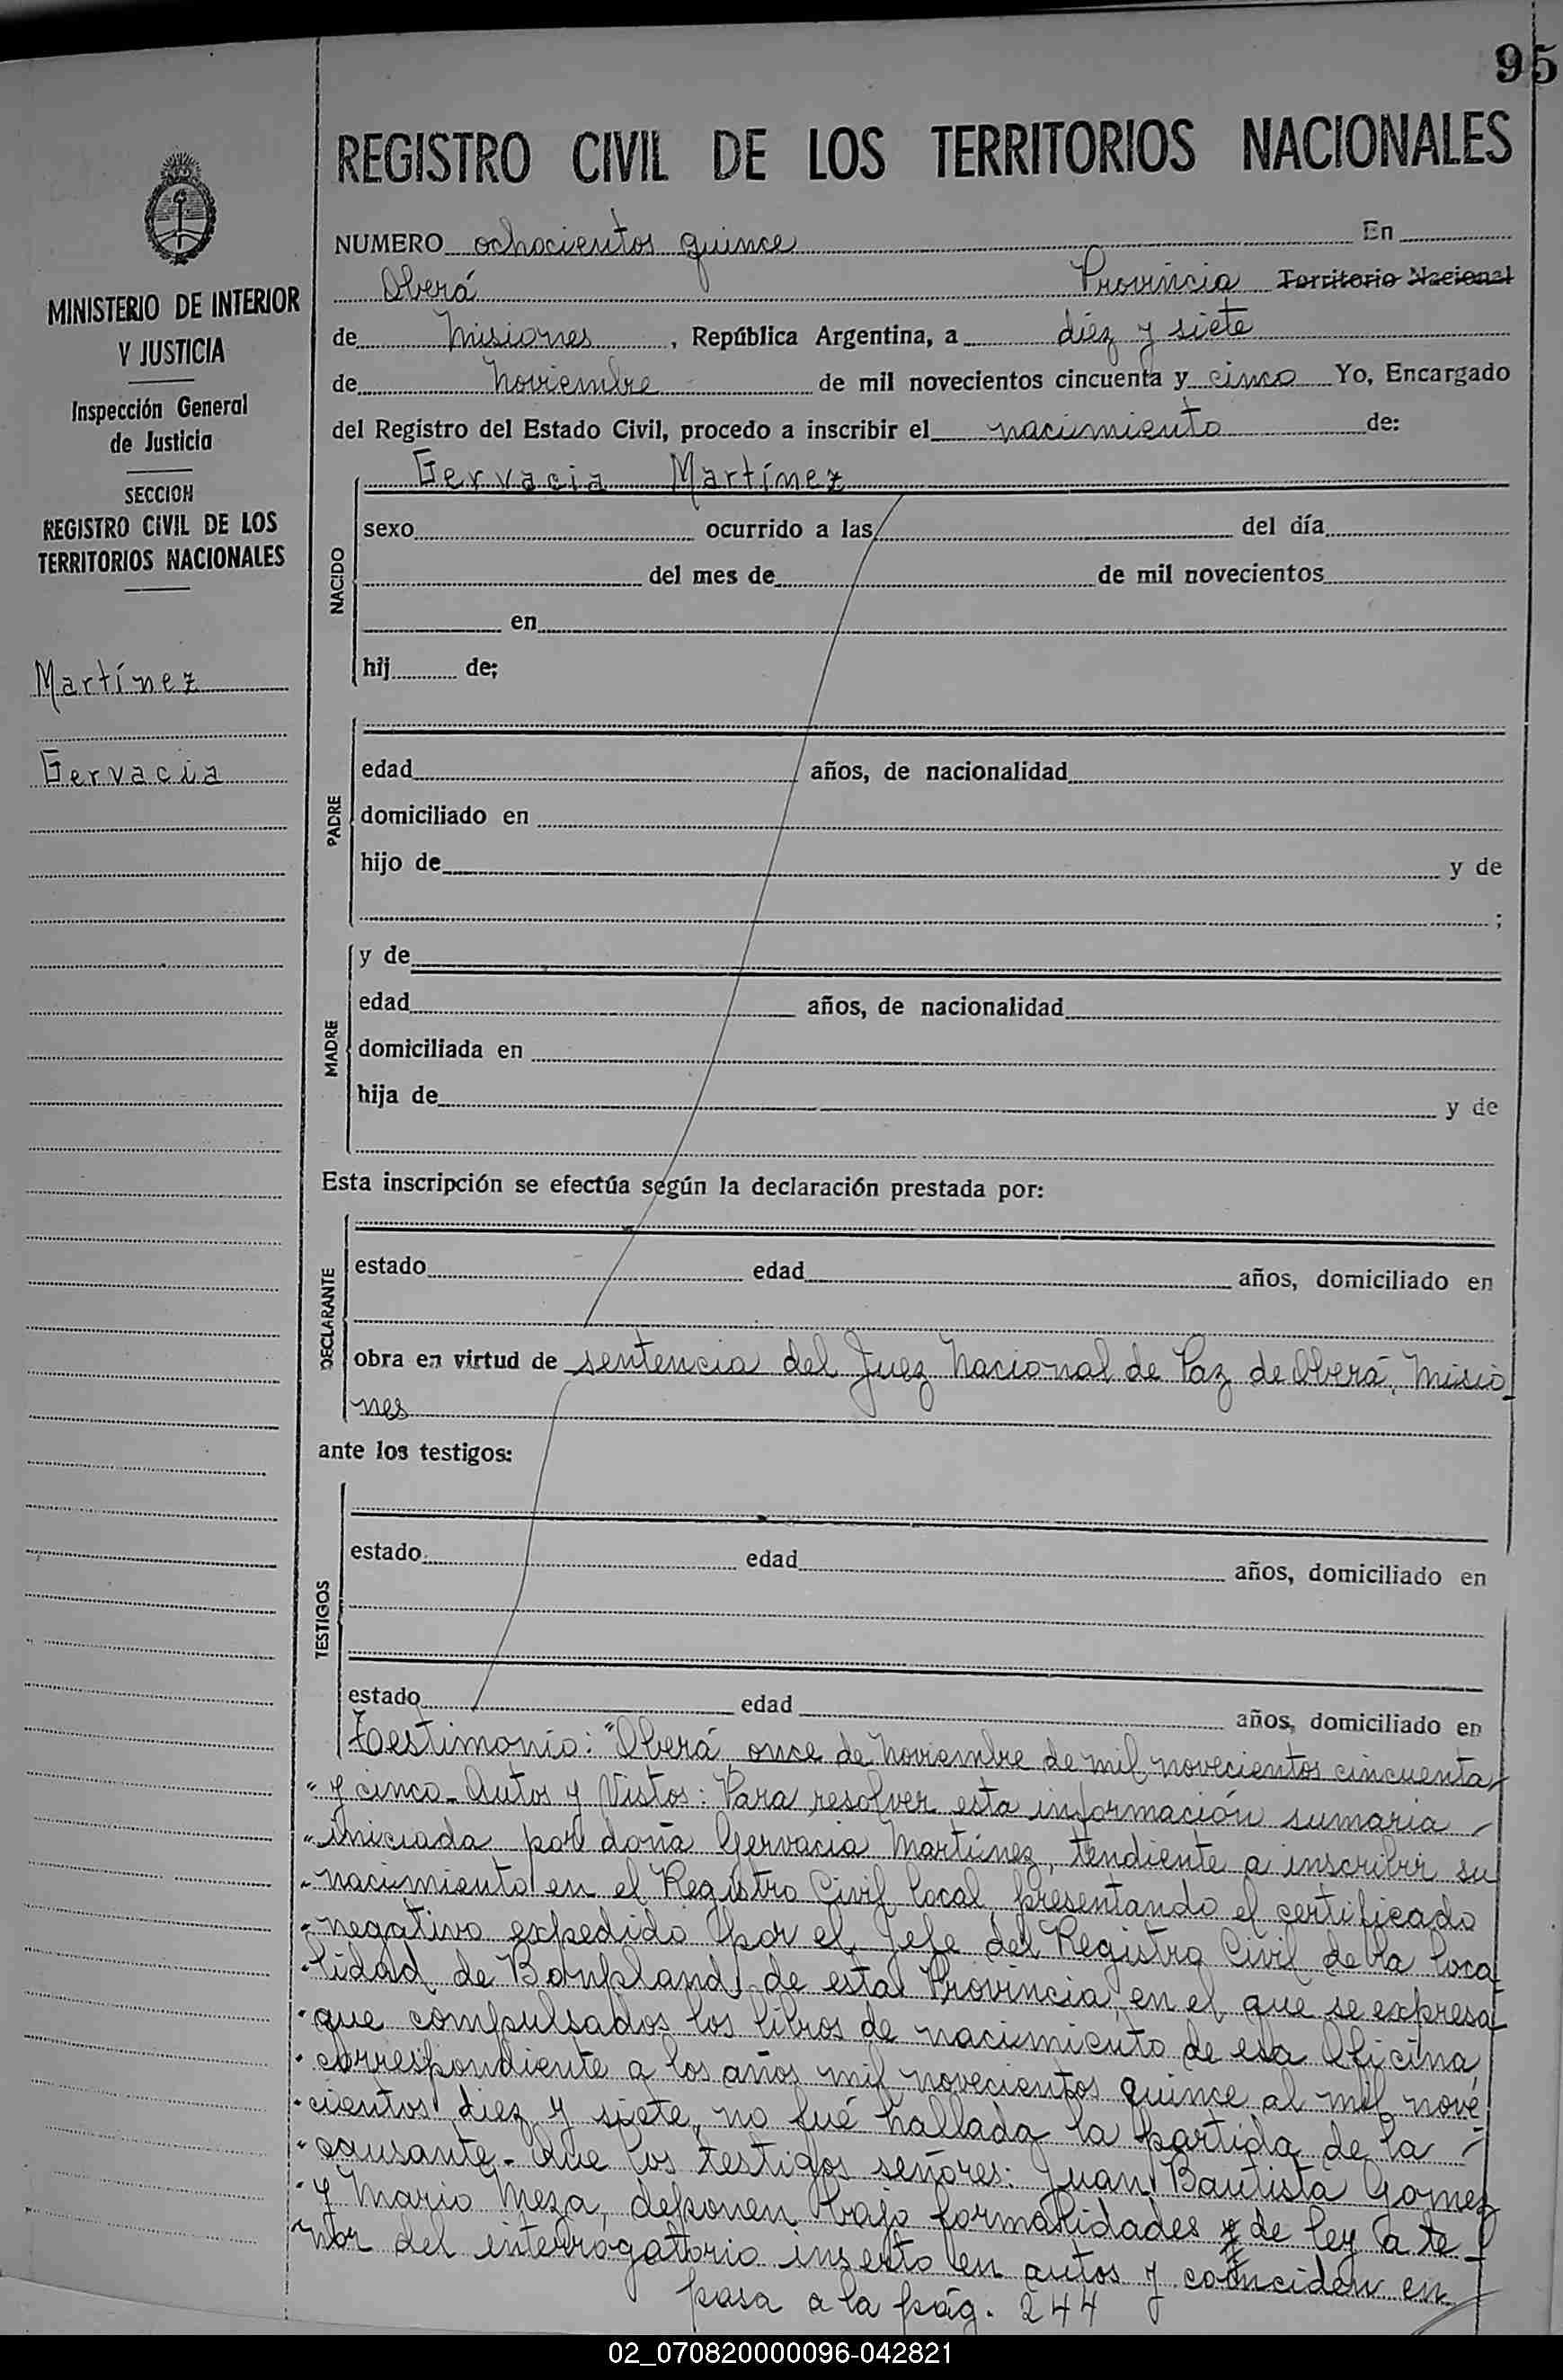 95
REGISTRO CIVIL DE LOS TERRITORIOS NACIONALES
MINISTERIO DE INTERIOR
Y JUSTICIA
Inspección General
de Justicia
SECCION
REGISTRO CIVIL DE LOS
TERRITORIOS NACIONALES
Martínez
Gervacia
NUMERO ochocientos quince En
Oberá Provincia Territorio Nacional
de Misiones, República Argentina, a diez y siete
de Noviembre de mil novecientos cincuenta y cinco Yo, Encargado
del Registro del Estado Civil, procedo a inscribir el nacimiento de:
Gervacia Martínez
NACIDO
sexo ocurrido a las del día
del mes de de mil novecientos
en
hij de;
PADRE
edad años, de nacionalidad
domiciliado en
hijo de y de
;
MADRE
y de
edad años, de nacionalidad
domiciliada en
hija de y de
Esta inscripción se efectúa según la declaración prestada por:
DECLARANTE
estado edad años, domiciliado en
obra en virtud de sentencia del Juez Nacional de Paz de Oberá, Misio
nes
ante los testigos:
TESTIGOS
estado edad años, domiciliado en
estado edad años, domiciliado en
Testimonio: "Oberá, once de Noviembre de mil novecientos cincuenta
" y cinco.- Autos y Vistos: Para resolver esta información sumaria
" iniciada por doña Gervacia Martínez, tendiente a inscribir su
" nacimiento en el Registro Civil local, presentando el certificado
" negativo expedido por el Jefe del Registro Civil de la loca
" lidad de Bonpland, de esta Provincia, en el que se expresa
" que compulsados los libros de nacimiento de esa Oficina,
" correspondiente a los años mil novecientos quince al mil nove
" cientos diez y siete, no fué hallada la partida de la
" causante.- Que los testigos señores: Juan Bautista Gomez
" y Mario Meza, deponen bajo formalidades de ley a te
" nor del interrogatorio inserto en autos y coinciden en
pasa a la pág. 244
02_070820000096-042821